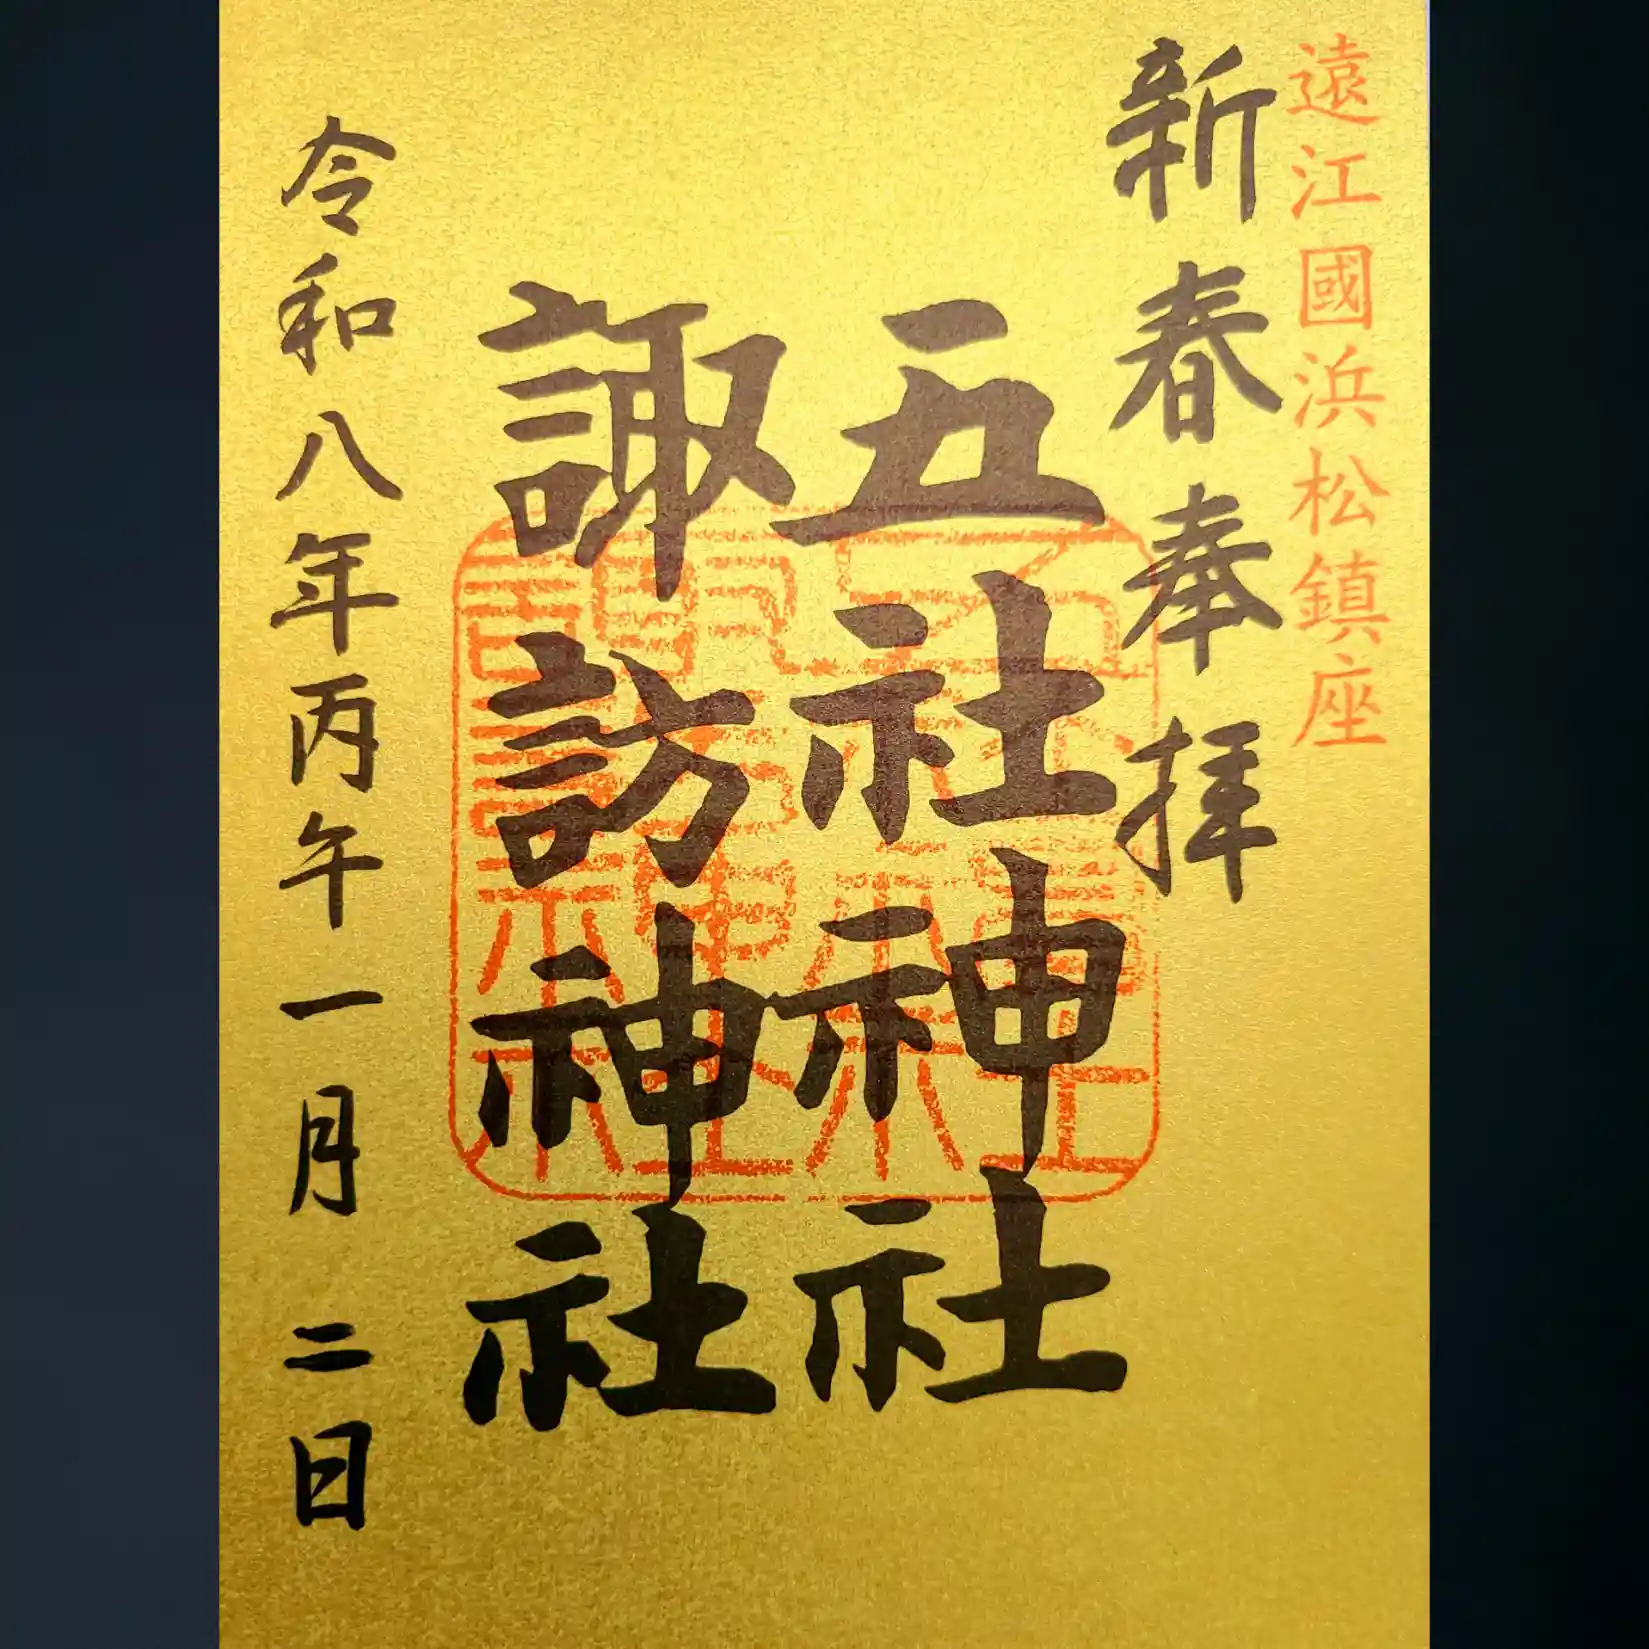 遠江國浜松鎮座
新春奉拝
五社神社
諏訪神社
令和八年丙午一月二日